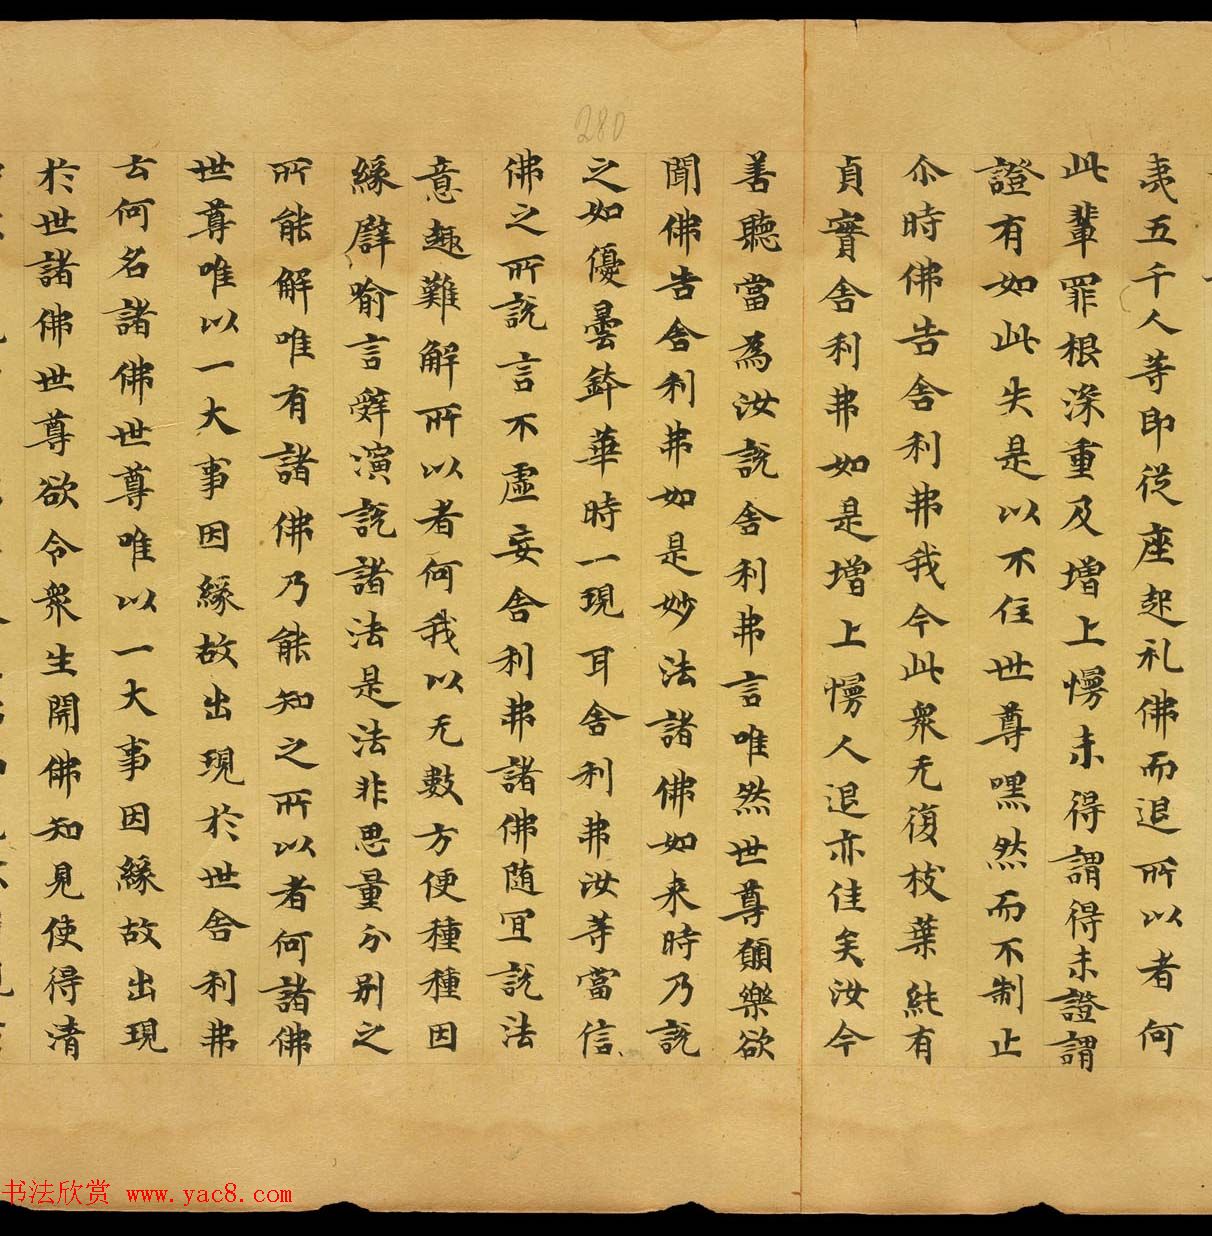 夷五千人等即從座起礼佛而退所以者何
此輩罪根深重及增上慢未得謂得未證謂
證有如此失是以不住世尊嘿然而不制止
尒時佛告舍利弗我今此衆无復枝葉純有
貞實舍利弗如是增上慢人退亦佳矣汝今
善聽當為汝說舍利弗言唯然世尊願樂欲
聞佛告舍利弗如是妙法諸佛如来時乃說
之如優曇鉢華時一現耳舍利弗汝等當信
佛之所說言不虛妄舍利弗諸佛随冝說法
意趣難解所以者何我以无數方便種種因
緣譬喻言辭演說諸法是法非思量分别之
所能解唯有諸佛乃能知之所以者何諸佛
世尊唯以一大事因緣故出現於世舍利弗
云何名諸佛世尊唯以一大事因緣故出現
於世諸佛世尊欲令衆生開佛知見使得清
280
书法欣赏 www.yac8.com